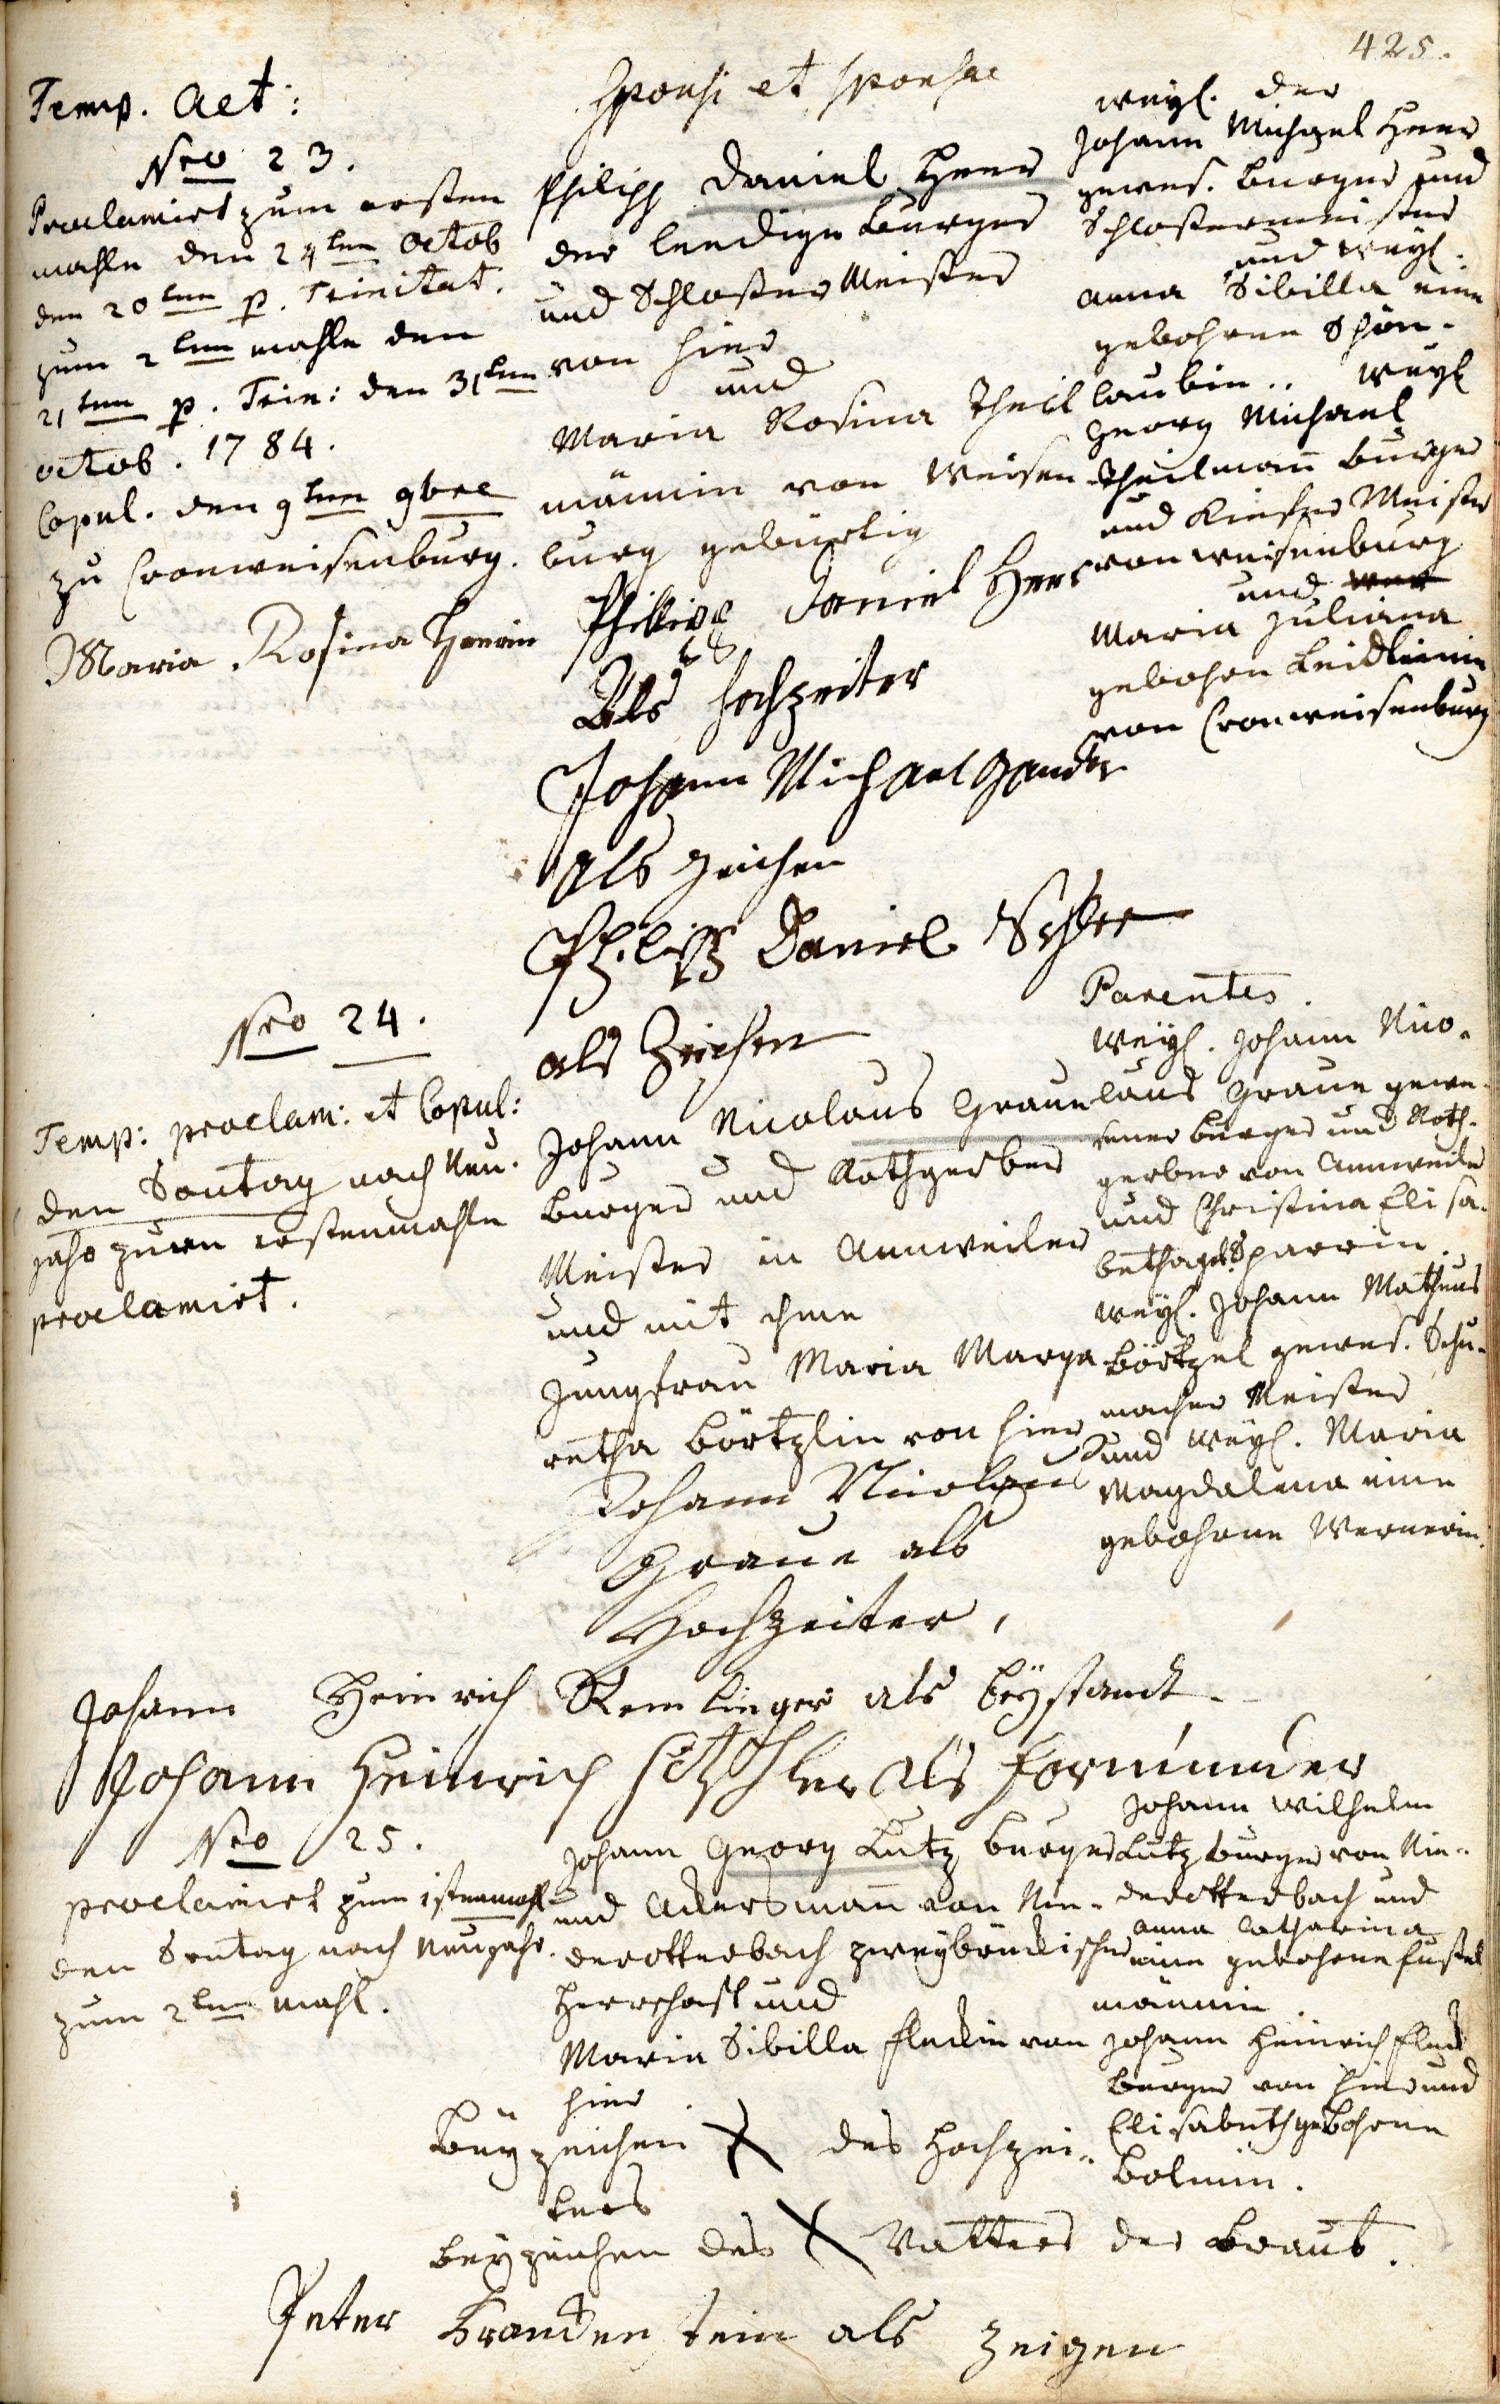 425.
Temp. Act:
Nro 23.
Proclamirt zum ersten
mahle den 24ten Octob
den 20ten p. Trinitat.
zum 2ten mahle den
21ten p. Trin: den 31ten
octob. 1784.
Copul. den 9ten 9bre
zu Cronweisenburg.
Maria Rosina Heerin
Sponsi et sponsae
Philipp Daniel Heer
der leedige Burger
und Schloßer Meister
von hier
und
Maria Rosina Theil
männin von Weisen
burg gebürtig
Philipp Daniel Heer
Als Hochzeiter
Johann Michael Gander
Als zeichen
Philipp Daniel
als Zeichen
weyl. der
Johann Michael Heer
gewes. Burger und
Schloßermeister
und weyl.
Anna Sibilla eine
gebohrne Schön-
laubin.. weyl
Georg Michael
Theilmann Burger
und Kiefer Meister
von Weisenburg
und
Maria Juliana
gebohrn
von Cronweisenburg
Nro 24.
Temp: proclam: et Copul:
den Sontag nach Neu-
jahr zum erstenmahle
proclamirt.
Johann Nicolaus Graue
Burger und Rothgerber
Meister in Annweiler
und mit ihme
Jungfrau Maria Marga
retha Börtzlin von hier
Johann Nicolaus
Graue als
Hochzeiter,
Parentes.
Weyl. Johann Nico-
laus Graue gewe-
sener Burger und Roth-
gerber von Annweiler
und Christina Elisa-
betha geb. Sparrin.
weyl. Johann Matheus
Börtzel gewes. Schu-
macher Meister
und weyl. Maria
Magdalena eine
gebohrne Wernerin.
Johann Heinrich Remlinger als beystandt.
Johann Heinrich als Formunder
Nro 25.
proclamirt zum 1stenmahl
den Sontag nach Neujahr.
zum 2ten mahl.
Johann Georg Lutz Burger
und Ackersmann von Nie-
derotterbach zweybrückischer
Herrschaft und
Maria Sibilla Fleckin von
hier.
Johann Wilhelm
Lutz Burger von Nie-
derotterbach und
Anna Catharina
eine gebohrne Fußel
männin.
Johann Heinrich Fleck
Burger von hier und
Elisabeth gebohrne
Bolmin.
Bey zeichen X des Hochzei-
ters
beyzeichen des X Vatters der Braut.
Peter Brandenstein als zeigen